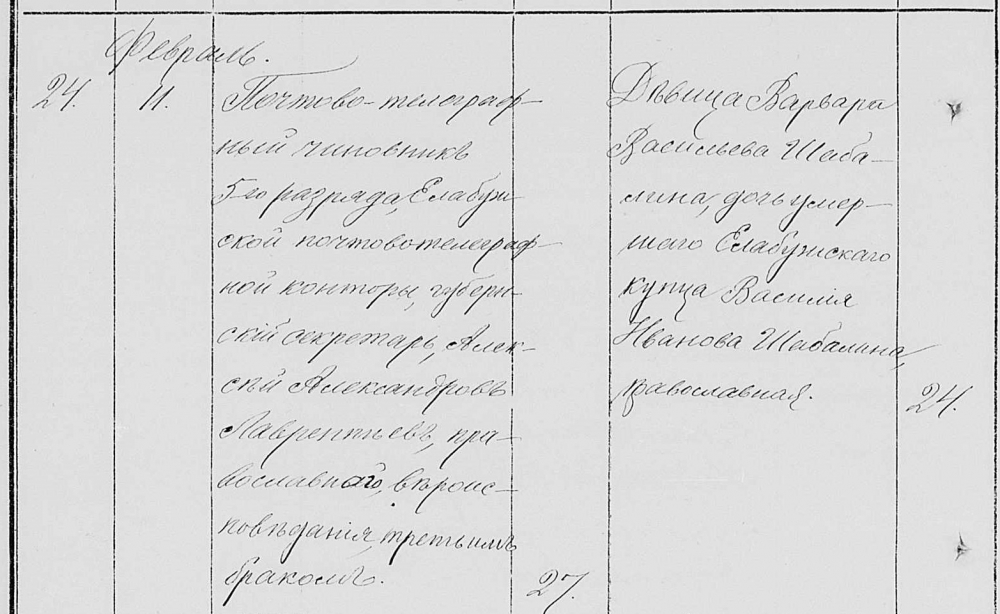 Февраль.
24.
11.
Почтово-телеграф-
ный чиновникъ
5-го разряда, Елабуж-
ской почтовотелеграф-
ной конторы, губерн-
скій секретарь, Алек-
сѣй Александровъ
Лаврентьевъ, пра-
вославнаго, вѣроис-
повѣданія, третьимъ
бракомъ.
27.
Дѣвица Варвара
Васильева Шаба-
лина, дочь умер-
шаго Елабужскаго
купца Василія
Иванова Шабалина,
православная.
24.